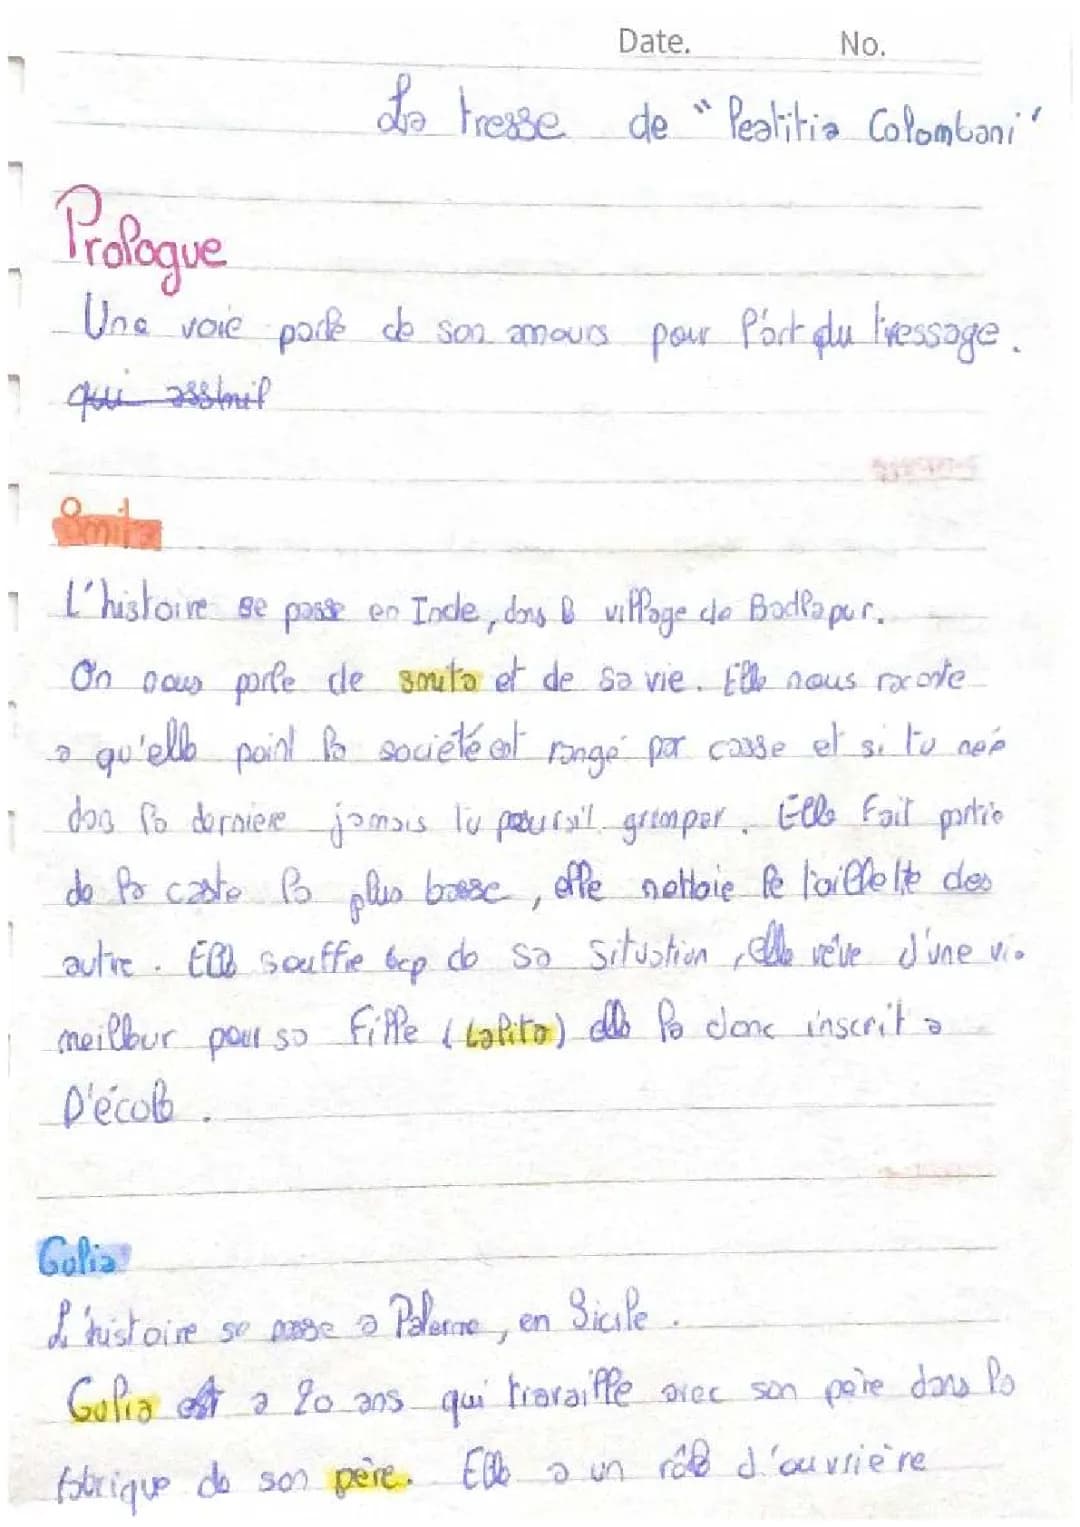 Date. No.
La tresse de "Leatitia Colombani"
Prologue
Une voie parle de son amours pour l'art du tressage.
qui assmil
Smita
L'histoire se passe en Inde, dans le village de Badlapur.
On nous parle de smita et de sa vie. Elle nous raconte
a qu'elle point la société est rangé par casse et si tu neé
dans la derniere jamais tu pourait grimper. Elle fait partie
de la caste la plus basse, elle nettoie le toillelte des
autre. Elle souffre bcp de sa situation, elle rêve d'une vie
meilleur pour sa fille (Lalita) elle la donc inscrit a
l'école.
Gulia
L'histoire se passe a Palerme, en Sicile.
Gulia est a 20 ans qui travaille avec son père dans la
fabrique de son père. Elle a un rôle d'ouvrière